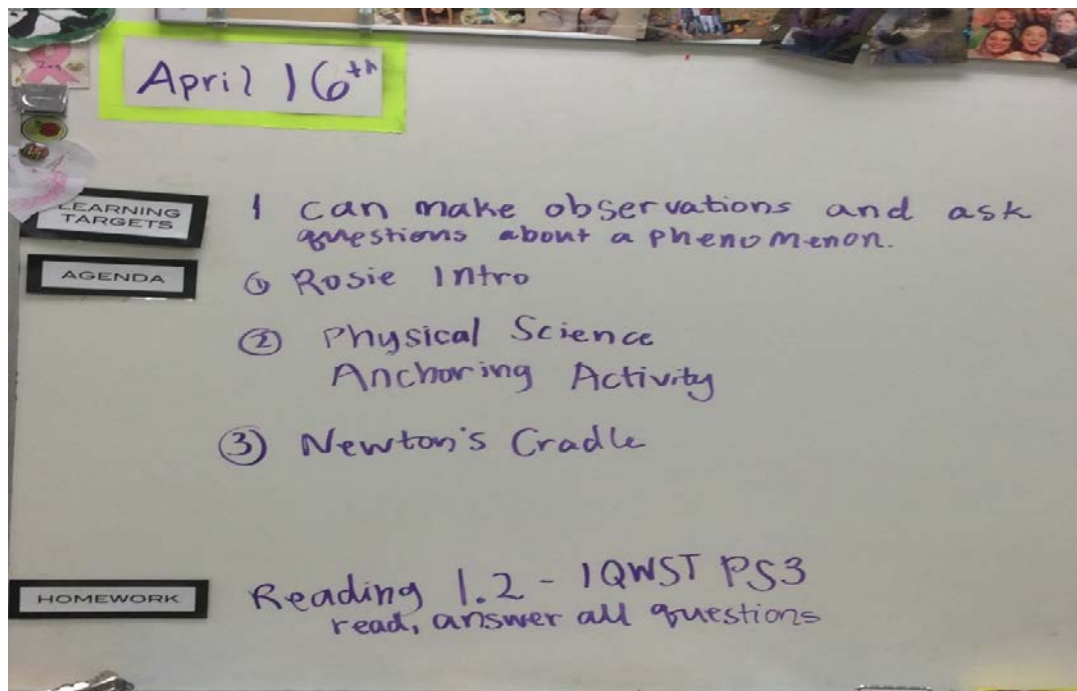 April 16th
LEARNING
TARGETS
I can make observations and ask
questions about a phenomenon.
AGENDA
① Rosie Intro
② Physical Science
Anchoring Activity
③ Newton's Cradle
HOMEWORK
Reading 1.2 - IQWST PS3
read, answer all questions